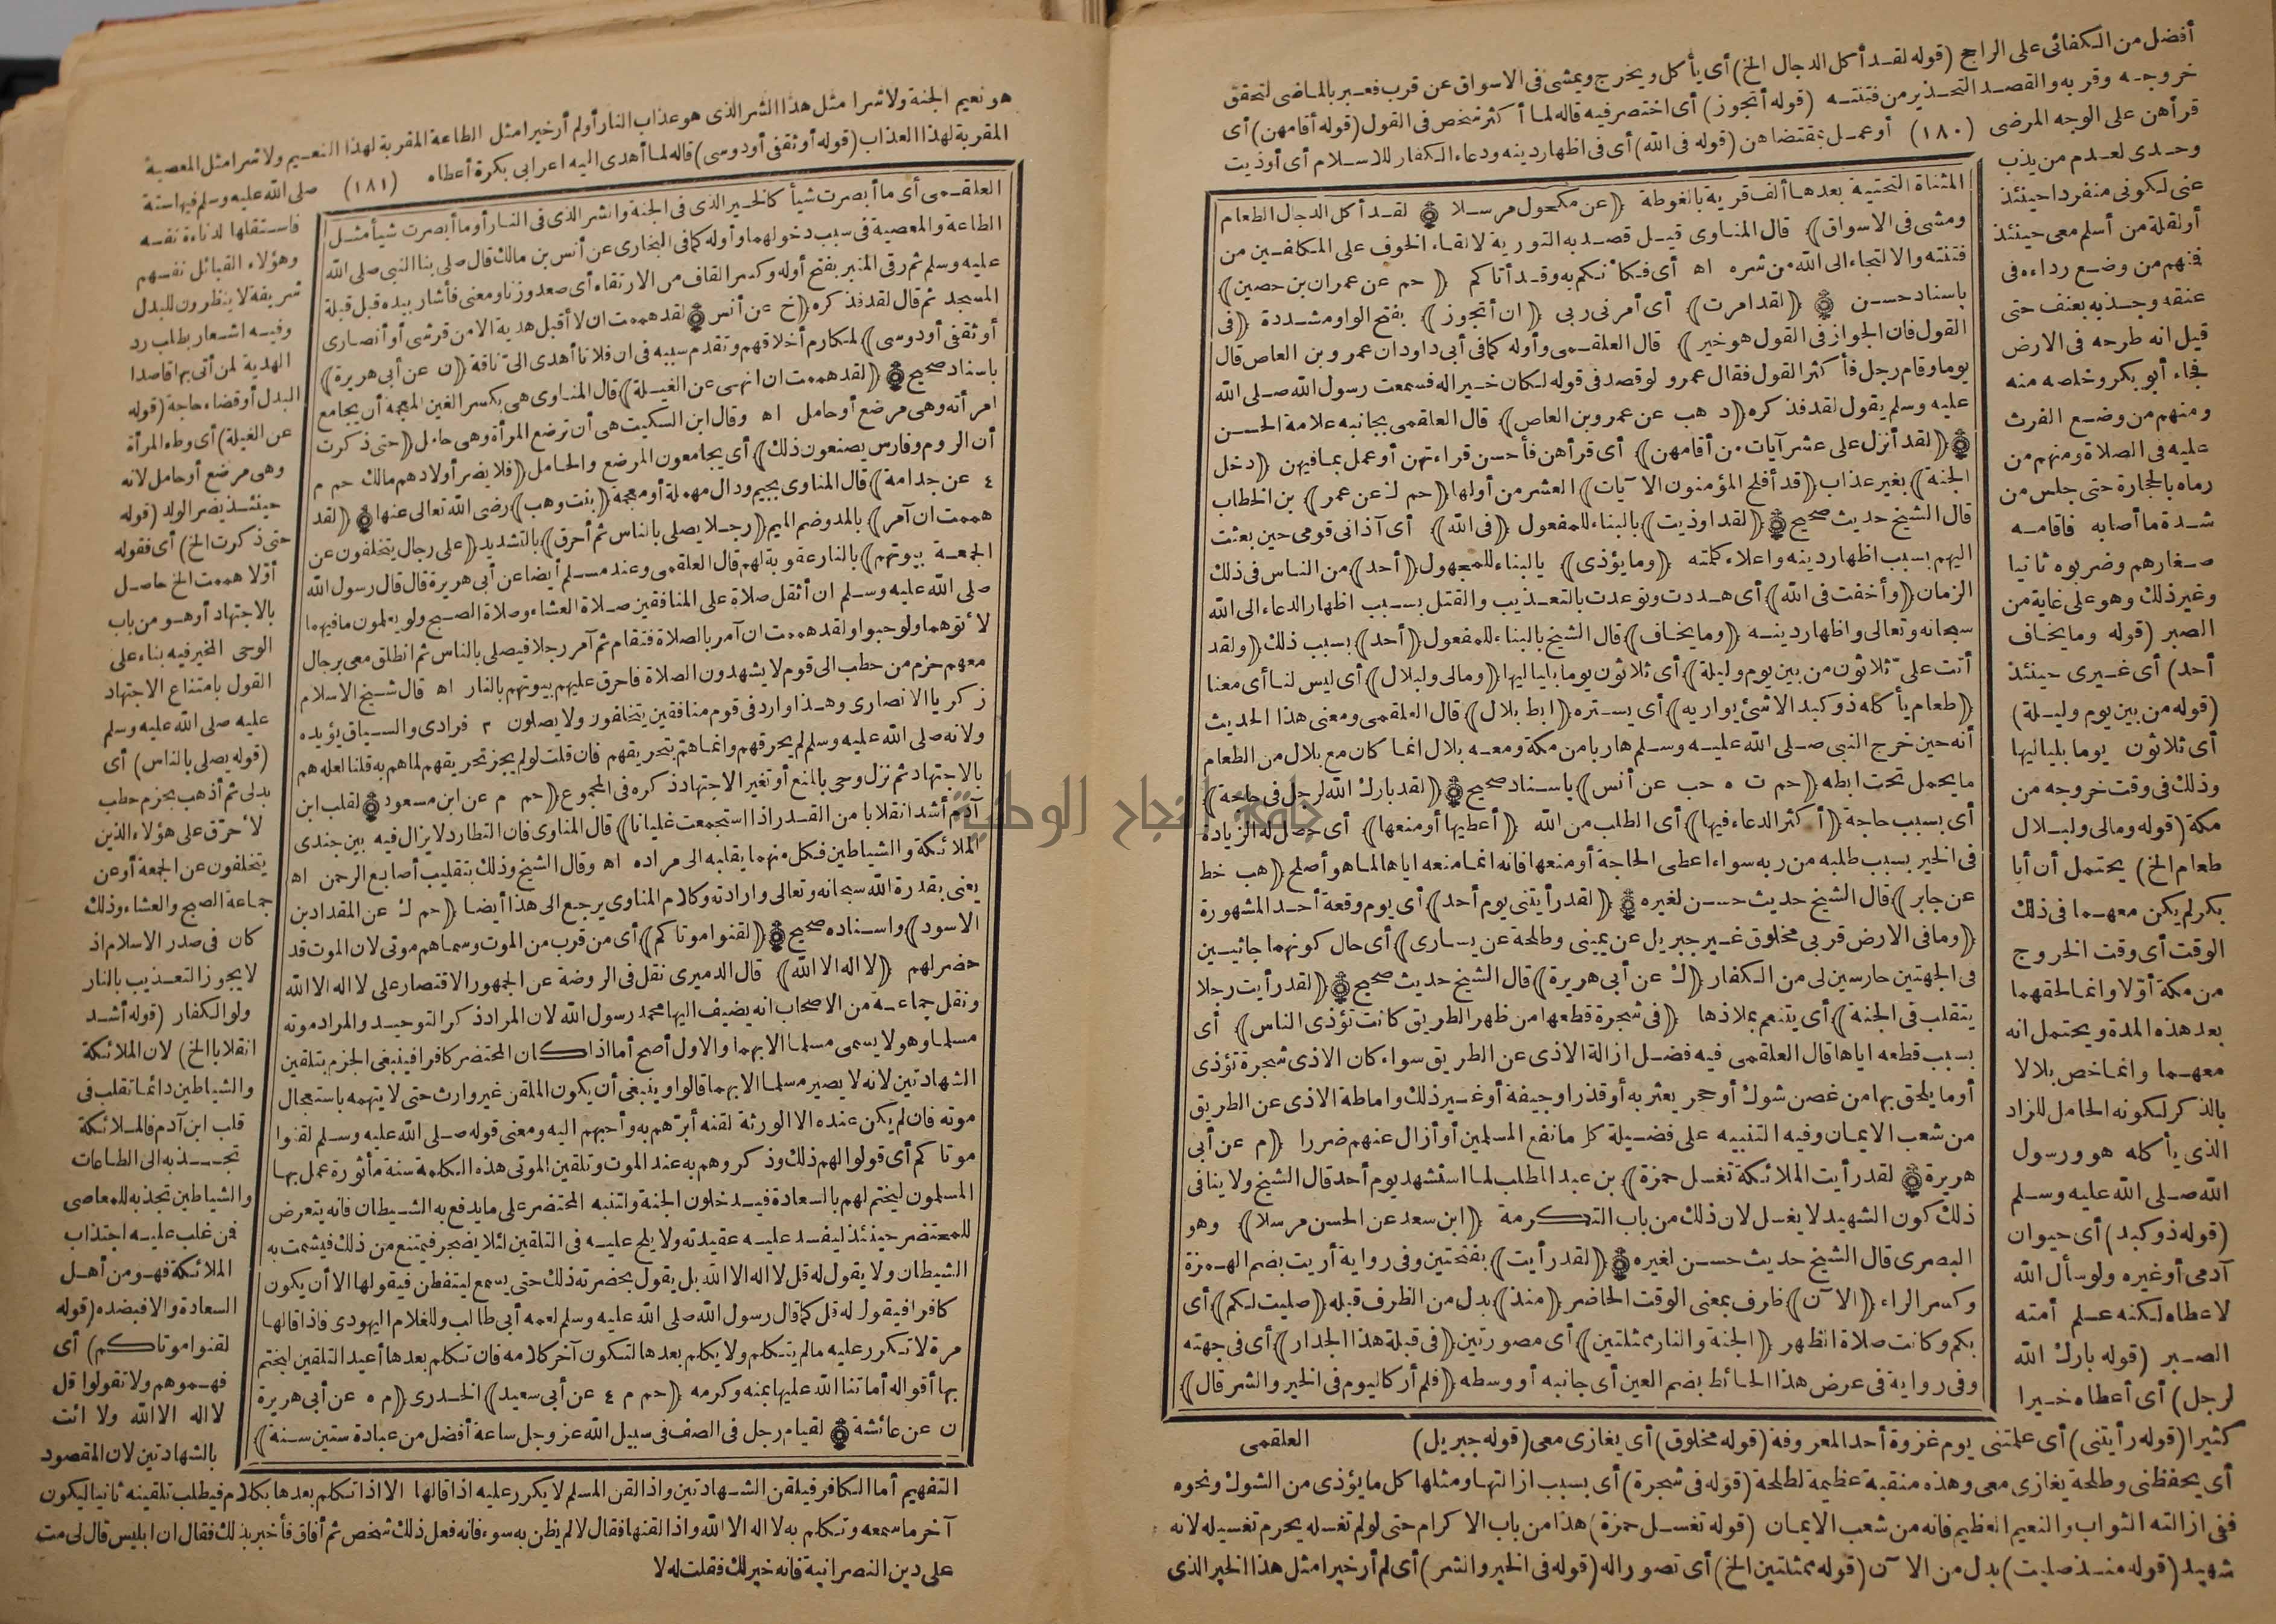 أفضل من الكفائى على الراجح (قوله لقد أكل الدجال الخ) أى يأكل ويخرج ويمشى فى الاسواق عن قرب فعبر بالماضى لتحقق
خروجه وقربه والقصد التحذير من فتنته (قوله أتجوز) أى اختصر فيه قاله لما أكثر شخص فى القول (قوله أقامهن) أى
قرأهن على الوجه المرضى (١٨٠) أو عمل بمقتضاهن (قوله فى الله) أى فى اظهار دينه ودعاء الكفار للاسلام أى أوذيت
وحدى لعدم من يذب
عنى لكونى منفردا حينئذ
أو لقلة من أسلم معى حينئذ
فمنهم من وضع رداءه فى
عنقه وجذبه بعنف حتى
قيل انه طرحه فى الارض
فجاء أبو بكر وخلصه منه
ومنهم من وضع الفرث
عليه فى الصلاة ومنهم من
رماه بالحجارة حتى جلس من
شدة ما أصابه فأقامه
صغارهم وضربوه ثانيا
وغير ذلك وهو على غاية من
الصبر (قوله وما يخاف
أحد) أى غيرى حينئذ
(قوله من بين يوم وليلة)
أى ثلاثون يوما بلياليها
وذلك فى وقت خروجه من
مكة (قوله ومالى ولبلال
طعام الخ) يحتمل أن أبا
بكر لم يكن معهما فى ذلك
الوقت أى وقت الخروج
من مكة أوّلا وانما لحقهما
بعد هذه المدة ويحتمل انه
معهما وانما خص بلالا
بالذكر لكونه الحامل للزاد
الذى يأكله هو ورسول
الله صلى الله عليه وسلم
(قوله ذو كبد) أى حيوان
آدمى أو غيره ولو سأل الله
لاعطاه لكنه علم أمته
الصبر (قوله بارك الله
لرجل) أى أعطاه خيرا
المثناة التحتية بعدها ألف قرية بالغوطة ﴿عن مكحول مرسلا ۞ لقد أكل الدجال الطعام
ومشى فى الاسواق﴾ قال المناوى قيل قصد به التورية لالقاء الخوف على المكلفين من
فتنته والالتجاء الى الله من شره اه أى فكأنكم به وقد أتاكم ﴿حم عن عمران بن حصين﴾
باسناد حسن ۞ ﴿لقد امرت﴾ أى أمرنى ربى ﴿ان أتجوز﴾ بفتح الواو مشددة ﴿فى
القول فان الجواز فى القول هو خير﴾ قال العلقمى وأوله كما فى أبى داود ان عمرو بن العاص قال
يوما وقام رجل فأكثر القول فقال عمرو لو قصد فى قوله لكان خيرا له فسمعت رسول الله صلى الله
عليه وسلم يقول لقد فذكره ﴿د هب عن عمرو بن العاص﴾ قال العلقمى بجانبه علامة الحسن
۞ ﴿لقد أنزل على عشر آيات من أقامهن﴾ أى قرأهن فأحسن قراءتهن أو عمل بما فيهن ﴿دخل
الجنة﴾ بغير عذاب ﴿قد أفلح المؤمنون الآيات﴾ العشر من أولها ﴿حم ك عن عمر﴾ بن الخطاب
قال الشيخ حديث صحيح ۞ ﴿لقد اوذيت﴾ بالبناء للمفعول ﴿فى الله﴾ أى آذانى قومى حين بعثت
اليهم بسبب اظهار دينه واعلاء كلمته ﴿وما يؤذى﴾ بالبناء للمجهول ﴿أحد﴾ من الناس فى ذلك
الزمان ﴿وأخفت فى الله﴾ أى هددت وتوعدت بالتعذيب والقتل بسبب اظهار الدعاء الى الله
سبحانه وتعالى واظهار دينه ﴿وما يخاف﴾ قال الشيخ بالبناء للمفعول ﴿أحد﴾ بسبب ذلك ﴿ولقد
أتت علىّ ثلاثون من بين يوم وليلة﴾ أى ثلاثون يوما بلياليها ﴿ومالى ولبلال﴾ أى ليس لنا أى معنا
﴿طعام يأكله ذو كبد الا شئ يواريه﴾ أى يستره ﴿ابط بلال﴾ قال العلقمى ومعنى هذا الحديث
أنه حين خرج النبى صلى الله عليه وسلم هاربا من مكة ومعه بلال انما كان مع بلال من الطعام
ما يحمل تحت ابطه ﴿حم ت ه حب عن أنس﴾ باسناد صحيح ۞ ﴿لقد بارك الله لرجل فى حاجة﴾
أى بسبب حاجة ﴿أكثر الدعاء فيها﴾ أى الطلب من الله ﴿أعطيها أو منعها﴾ أى حصل له الزيادة
فى الخير بسبب طلبه من ربه سواء اعطى الحاجة أو منعها فانه انما منعه اياها لما هو أصلح ﴿هب خط
عن جابر﴾ قال الشيخ حديث حسن لغيره ۞ ﴿لقد رأيتنى يوم أحد﴾ أى يوم وقعة أحد المشهورة
﴿وما فى الارض قربى مخلوق غير جبريل عن يمينى وطلحة عن يسارى﴾ أى حال كونهما جاثيين
فى الجهتين حارسين لى من الكفار ﴿ك عن أبى هريرة﴾ قال الشيخ حديث صحيح ۞ ﴿لقد رأيت رجلا
يتقلب فى الجنة﴾ أى يتنعم بملاذها ﴿فى شجرة قطعها من ظهر الطريق كانت تؤذى الناس﴾ أى
بسبب قطعه اياها قال العلقمى فيه فضل ازالة الاذى عن الطريق سواء كان الاذى شجرة تؤذى
أو ما يلحق بها من غصن شوك أو حجر يعثر به أو قذر او جيفة أو غير ذلك واماطة الاذى عن الطريق
من شعب الايمان وفيه التنبيه على فضيلة كل ما نفع المسلمين أو أزال عنهم ضررا ﴿م عن أبى
هريرة ۞ لقد رأيت الملائكة تغسل حمزة﴾ بن عبد المطلب لما استشهد يوم أحد قال الشيخ ولا ينافى
ذلك كون الشهيد لا يغسل لان ذلك من باب التكرمة ﴿ابن سعد عن الحسن مرسلا﴾ وهو
البصرى قال الشيخ حديث حسن لغيره ۞ ﴿لقد رأيت﴾ بفتحتين وفى رواية أريت بضم الهمزة
وكسر الراء ﴿الآن﴾ ظرف بمعنى الوقت الحاضر ﴿منذ﴾ بدل من الظرف قبله ﴿صليت لكم﴾ أى
بكم وكانت صلاة الظهر ﴿الجنة والنار ممثلتين﴾ أى مصورتين ﴿فى قبلة هذا الجدار﴾ أى فى جهته
وفى رواية فى عرض هذا الحائط بضم العين أى جانبه أو وسطه ﴿فلم أر كاليوم فى الخير والشر قال﴾
كثيرا (قوله رأيتنى) أى علمتنى يوم غزوة أحد المعروفة (قوله مخلوق) أى يغازى معى (قوله جبريل) العلقمى
أى يحفظنى وطلحة يغازى معى وهذه منقبة عظيمة لطلحة (قوله فى شجرة) أى بسبب ازالتها ومثلها كل ما يؤذى من الشوك ونحوه
ففى ازالته الثواب والنعيم العظيم فانه من شعب الايمان (قوله تغسل حمزة) هذا من باب الاكرام حتى لو لم تغسله يحرم تغسيله لانه
شهيد (قوله منذ صليت) بدل من الآن (قوله ممثلتين الخ) أى تصورا له (قوله فى الخير والشر) أى لم أر خيرا مثل هذا الخير الذى
هو نعيم الجنة ولا شرا مثل هذا الشر الذى هو عذاب النار أو لم أر خيرا مثل الطاعة المقربة لهذا النعيم ولا شرا مثل المعصية
المقربة لهذا العذاب (قوله أو ثقفى أو دوسى) قاله لما أهدى اليه اعرابى بكرة أعطاه (١٨١) صلى الله عليه وسلم فيها ستة
فاستقلها لدناءة نفسه
وهؤلاء القبائل نفسهم
شريفة لا ينظرون للبدل
وفيه اشعار بطلب رد
الهدية لمن أتى بها قاصدا
البدل أو قضاء حاجة (قوله
عن الغيلة) أى وطء المرأة
وهى مرضع أو حامل لانه
حينئذ يضر الولد (قوله
حتى ذكرت الخ) أى فقوله
أوّلا هممت الخ حاصل
بالاجتهاد أو هو من باب
الوحى المخير فيه بناء على
القول بامتناع الاجتهاد
عليه صلى الله عليه وسلم
(قوله يصلى بالناس) أى
بدلى ثم أذهب بحزم حطب
لأحرّق على هؤلاء الذين
يتخلفون عن الجمعة أو عن
جماعة الصبح والعشاء وذلك
كان فى صدر الاسلام اذ
لا يجوز التعذيب بالنار
ولو الكفار (قوله أشد
انقلابا الخ) لان الملائكة
والشياطين دائما تقلب فى
قلب ابن آدم فالملائكة
تجذبه الى الطاعات
والشياطين تجذبه للمعاصى
فمن غلب عليه اجتذاب
الملائكة فهو من أهل
السعادة والا فبضده (قوله
لقنوا موتاكم) أى
فهموهم ولا تقولوا قل
لا اله الا الله ولا ائت
بالشهادتين لان المقصود
العلقمى أى ما أبصرت شيأ كالخير الذى فى الجنة والشر الذى فى النار أو ما أبصرت شيأ مثل
الطاعة والمعصية فى سبب دخولهما وأوله كما فى البخارى عن أنس بن مالك قال صلى بنا النبى صلى الله
عليه وسلم ثم رقى المنبر بفتح أوله وكسر القاف من الارتقاء أى صعد وزنا ومعنى فأشار بيده قبل قبلة
المسجد ثم قال لقد فذكره ﴿خ عن أنس ۞ لقد هممت ان لا أقبل هدية الا من قرشى أو أنصارى
أو ثقفى أو دوسى﴾ لمكارم أخلاقهم وتقدم سببه فى ان فلانا أهدى الىّ ناقة ﴿ن عن أبى هريرة﴾
باسناد صحيح ۞ ﴿لقد هممت ان انهى عن الغيلة﴾ قال المناوى هى بكسر الغين المعجمة أن يجامع
امرأته وهى مرضع أو حامل اه وقال ابن السكيت هى أن ترضع المرأة وهى حامل ﴿حتى ذكرت
أن الروم وفارس يصنعون ذلك﴾ أى يجامعون المرضع والحامل ﴿فلا يضر أولادهم مالك حم م
٤ عن جدامة﴾ قال المناوى بجيم ودال مهملة أو معجمة ﴿بنت وهب﴾ رضى الله تعالى عنها ۞ ﴿لقد
هممت ان آمر﴾ بالمد وضم الميم ﴿رجلا يصلى بالناس ثم أحرق﴾ بالتشديد ﴿على رجال يتخلفون عن
الجمعة بيوتهم﴾ بالنار عقوبة لهم قال العلقمى وعند مسلم أيضا عن أبى هريرة قال قال رسول الله
صلى الله عليه وسلم ان أثقل صلاة على المنافقين صلاة العشاء وصلاة الصبح ولو يعلمون ما فيهما
لأتوهما ولو حبوا ولقد هممت ان آمر بالصلاة فتقام ثم آمر رجلا فيصلى بالناس ثم انطلق معى برجال
معهم حزم من حطب الى قوم لا يشهدون الصلاة فأحرق عليهم بيوتهم بالنار اه قال شيخ الاسلام
زكريا الانصارى وهذا وارد فى قوم منافقين يتخلفون ولا يصلون ٢ فرادى والسياق يؤيده
ولانه صلى الله عليه وسلم لم يحرقهم وانما هتم بتحريقهم فان قلت لو لم يجز تحريقهم لما هم به قلنا لعله هم
بالاجتهاد ثم نزل وحى بالمنع أو تغير الاجتهاد ذكره فى المجموع ﴿حم م عن ابن مسعود ۞ لقلب ابن
آدم أشد انقلابا من القدر اذا استجمعت غليانا﴾ قال المناوى فان التطارد لا يزال فيه بين جندى
الملائكة والشياطين فكل منهما يقلبه الى مراده اه وقال الشيخ وذلك بتقليب أصابع الرحمن اه
يعنى بقدرة الله سبحانه وتعالى وارادته وكلام المناوى يرجع الى هذا أيضا ﴿حم ك عن المقداد بن
الاسود﴾ واسناده صحيح ۞ ﴿لقنوا موتاكم﴾ أى من قرب من الموت وسماهم موتى لان الموت قد
حضر لهم ﴿لا اله الا الله﴾ قال الدميرى نقل فى الروضة عن الجمهور الاقتصار على لا اله الا الله
ونقل جماعة من الاصحاب انه يضيف اليها محمد رسول الله لان المراد ذكر التوحيد والمراد موته
مسلما وهو لا يسمى مسلما الا بهما والاول أصح أما اذا كان المحتضر كافرا فينبغى الجزم بتلقين
الشهادتين لانه لا يصير مسلما الا بهما قالوا وينبغى أن يكون الملقن غير وارث حتى لا يتهمه باستعجال
موته فان لم يكن عنده الا الورثة لقنه أبرّهم به وأحبهم اليه ومعنى قوله صلى الله عليه وسلم لقنوا
موتاكم أى قولوا لهم ذلك وذكروهم به عند الموت وتلقين الموتى هذه الكلمة سنة مأثورة عمل بها
المسلمون ليختم لهم بالسعادة فيدخلون الجنة ولتنبه المحتضر على ما يدفع به الشيطان فانه يتعرض
للمحتضر حينئذ ليفسد عليه عقيدته ولا يلح عليه فى التلقين لئلا يضجر فيمتنع من ذلك فيشمت به
الشيطان ولا يقول له قل لا اله الا الله بل يقول بحضرته ذلك حتى يسمع ليتفطن فيقولها الا أن يكون
كافرا فيقول له قل كما قال رسول الله صلى الله عليه وسلم لعمه أبى طالب وللغلام اليهودى فاذا قالها
مرة لا تكرر عليه ما لم يتكلم ولا يكلم بعدها لتكون آخر كلامه فان تكلم بعدها أعيد التلقين ليختم
بها أقواله أماتنا الله عليها بمنه وكرمه ﴿حم م ٤ عن أبى سعيد﴾ الخدرى ﴿م ه عن أبى هريرة
ن عن عائشة ۞ لقيام رجل فى الصف فى سبيل الله عز وجل ساعة أفضل من عبادة ستين سنة﴾
التفهيم أما الكافر فيلقن الشهادتين واذا لقن المسلم لا يكرر عليه اذا قالها الا اذا تكلم بعدها بكلام فيطلب تلقينه ثانيا ليكون
آخر ما سمعه وتكلم به لا اله الا الله واذا لقنها فقال لا لم يظن به سوء فانه فعل ذلك شخص ثم أفاق فأخبر بذلك فقال ان ابليس قال لى مت
على دين النصرانية فانه خير لك فقلت له لا
جامعة النجاح الوطنية